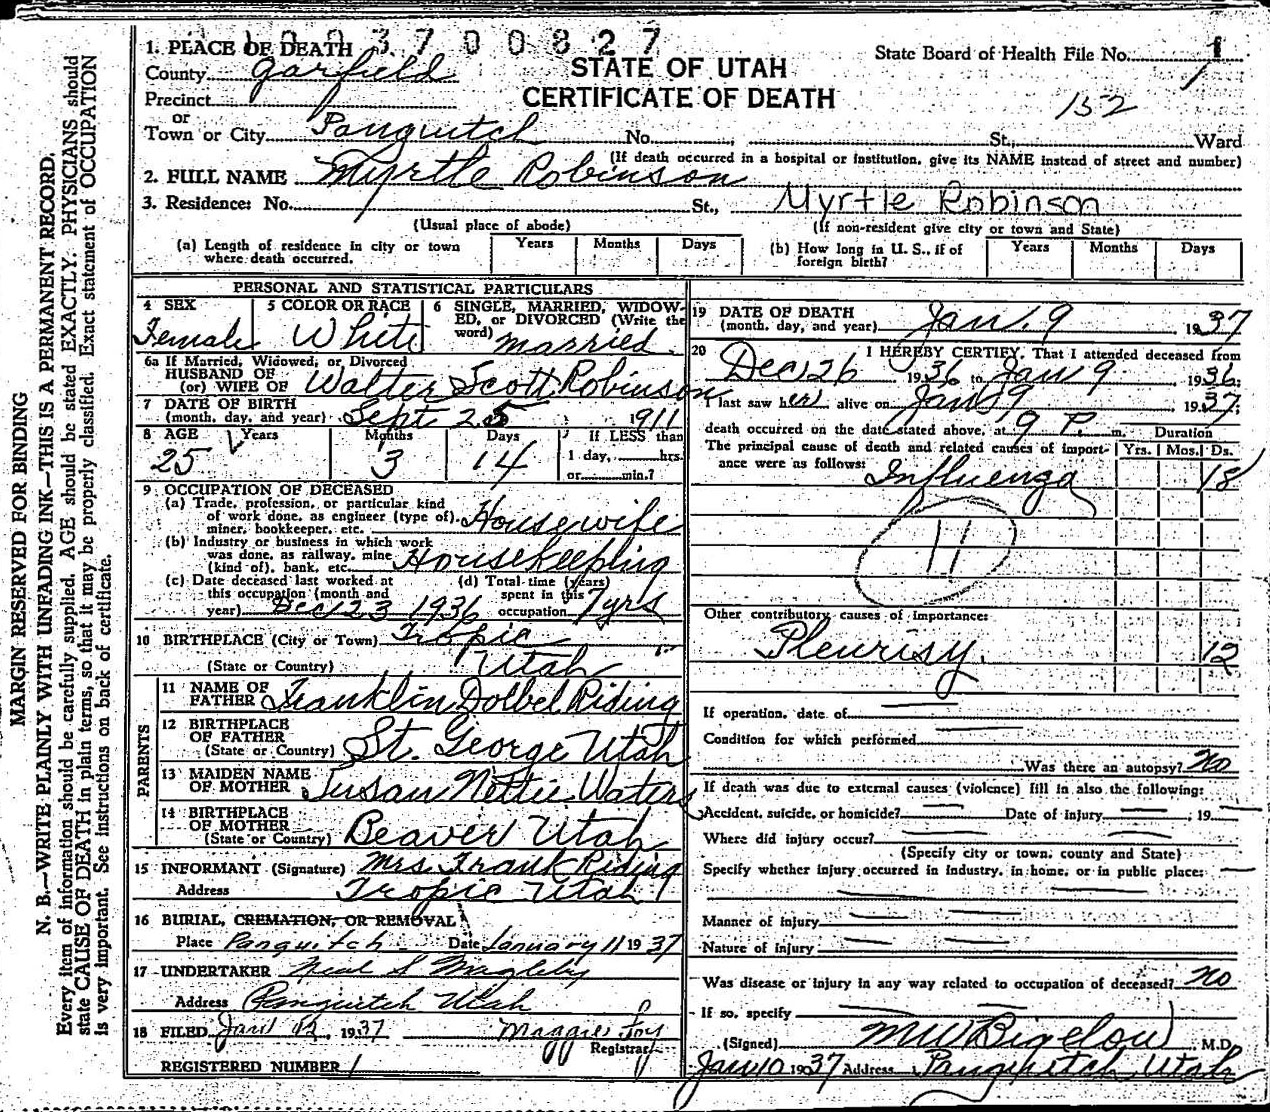 1003700827
1. PLACE OF DEATH
County Garfield
Precinct
or
Town or City Panguitch No. St., Ward
State Board of Health File No. 1
1
152
STATE OF UTAH
CERTIFICATE OF DEATH
(If death occurred in a hospital or institution, give its NAME instead of street and number)
2. FULL NAME Myrtle Robinson
3. Residence: No. St., Myrtle Robinson
(Usual place of abode) (If non-resident give city or town and State)
(a) Length of residence in city or town where death occurred. Years Months Days
(b) How long in U. S., if of foreign birth? Years Months Days
PERSONAL AND STATISTICAL PARTICULARS
4 SEX Female
5 COLOR OR RACE White
6 SINGLE, MARRIED, WIDOWED, or DIVORCED (Write the word) married
6a If Married, Widowed, or Divorced
HUSBAND OF
(or) WIFE OF Walter Scott Robinson
7 DATE OF BIRTH
(month, day, and year) Sept 25 1911
8 AGE Years Months Days If LESS than
25 3 14 1 day, hrs.
or min.?
9 OCCUPATION OF DECEASED
(a) Trade, profession, or particular kind
of work done, as engineer (type of), Housewife
miner, bookkeeper, etc.
(b) Industry or business in which work
was done, as railway, mine
(kind of), bank, etc. Housekeeping
(c) Date deceased last worked at
this occupation (month and
year) Dec 23 1936
(d) Total time (years)
spent in this
occupation 7 yrs
10 BIRTHPLACE (City or Town) Tropic
(State or Country) Utah
PARENTS
11 NAME OF
FATHER Franklin Dolbel Riding
12 BIRTHPLACE
OF FATHER
(State or Country) St. George Utah
13 MAIDEN NAME
OF MOTHER Susan Nettie Waters
14 BIRTHPLACE
OF MOTHER
(State or Country) Beaver Utah
15 INFORMANT (Signature) Mrs. Frank Riding
Address Tropic Utah
16 BURIAL, CREMATION, OR REMOVAL
Place Panguitch Date January 11 1937
17 UNDERTAKER Neal S Magleby
Address Panguitch Utah
18 FILED Jan 12, 1937 Maggie Foy
Registrar
REGISTERED NUMBER 1
19 DATE OF DEATH
(month, day, and year) Jan. 9 1937
20 I HEREBY CERTIFY, That I attended deceased from
Dec 26 1936 to Jan 9 1936;
I last saw her alive on Jan 9 1937;
death occurred on the date stated above, at 9 P. m. Duration
The principal cause of death and related causes of importance were as follows: Yrs. Mos. Ds.
Influenza 18
11
Other contributory causes of importance:
Pleurisy. 12
If operation, date of
Condition for which performed
Was there an autopsy? No
If death was due to external causes (violence) fill in also the following:
Accident, suicide, or homicide? Date of injury , 19
Where did injury occur?
(Specify city or town, county and State)
Specify whether injury occurred in industry, in home, or in public place:
Manner of injury
Nature of injury
Was disease or injury in any way related to occupation of deceased? No
If so, specify
(Signed) M W Bigelow, M.D.
Jan 10 1937 Address Panguitch, Utah
MARGIN RESERVED FOR BINDING
N. B.—WRITE PLAINLY WITH UNFADING INK—THIS IS A PERMANENT RECORD.
Every item of information should be carefully supplied. AGE should be stated EXACTLY. PHYSICIANS should
state CAUSE OF DEATH in plain terms, so that it may be properly classified. Exact statement of OCCUPATION
is very important. See instructions on back of certificate.